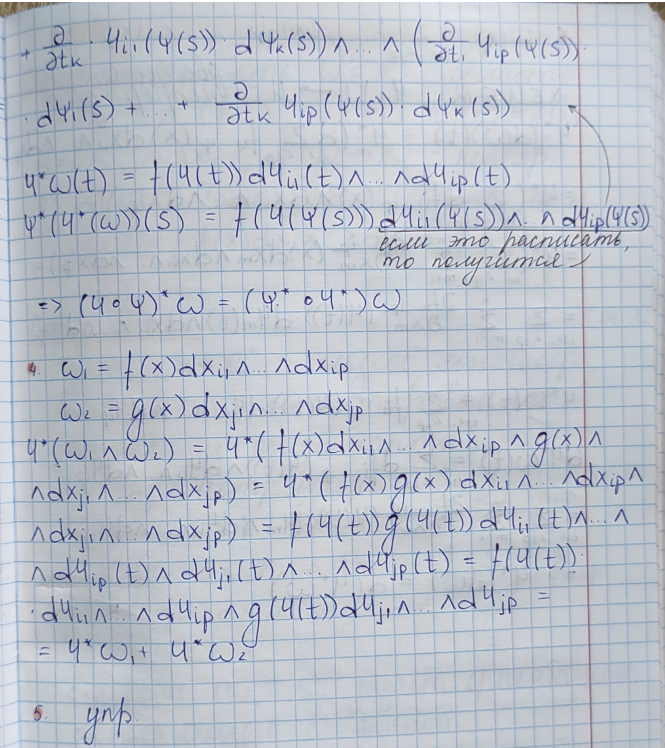 + ∂/∂tₖ · φi₁(ψ(s)) · dψₖ(s)) ∧ ... ∧ (∂/∂t₁ φip(ψ(s)) ·
· dψ₁(s) + ... + ∂/∂tₖ φip(ψ(s)) · dψₖ(s))
φ*ω(t) = f(φ(t)) dφi₁(t) ∧ ... ∧ dφip(t)
ψ*(φ*(ω))(s) = f(φ(ψ(s))) dφi₁(ψ(s)) ∧ .. ∧ dφip(ψ(s))
если это расписать,
то получится
=> (φ∘ψ)*ω = (ψ* ∘ φ*)ω
4. ω₁ = f(x)dxi₁ ∧ ... ∧ dxip
ω₂ = g(x)dxj₁ ∧ ... ∧ dxjp
φ*(ω₁ ∧ ω₂) = φ*(f(x)dxi₁ ∧ ... ∧ dxip ∧ g(x) ∧
∧ dxj₁ ∧ ... ∧ dxjp) = φ*(f(x)g(x)dxi₁ ∧ ... ∧ dxip ∧
∧ dxj₁ ∧ ... ∧ dxjp) = f(φ(t))g(φ(t))dφi₁(t) ∧ ... ∧
∧ dφip(t) ∧ dφj₁(t) ∧ ... ∧ dφjp(t) = f(φ(t)) ·
· dφi₁ ∧ .. ∧ dφip ∧ g(φ(t))dφj₁ ∧ ... ∧ dφjp =
= φ*ω₁ + φ*ω₂
5. упр.